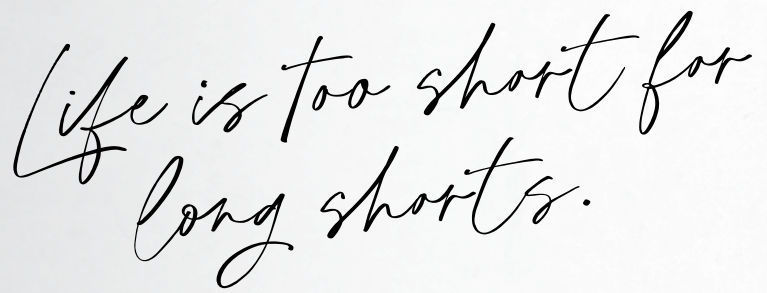 Life is too short for
long shorts.